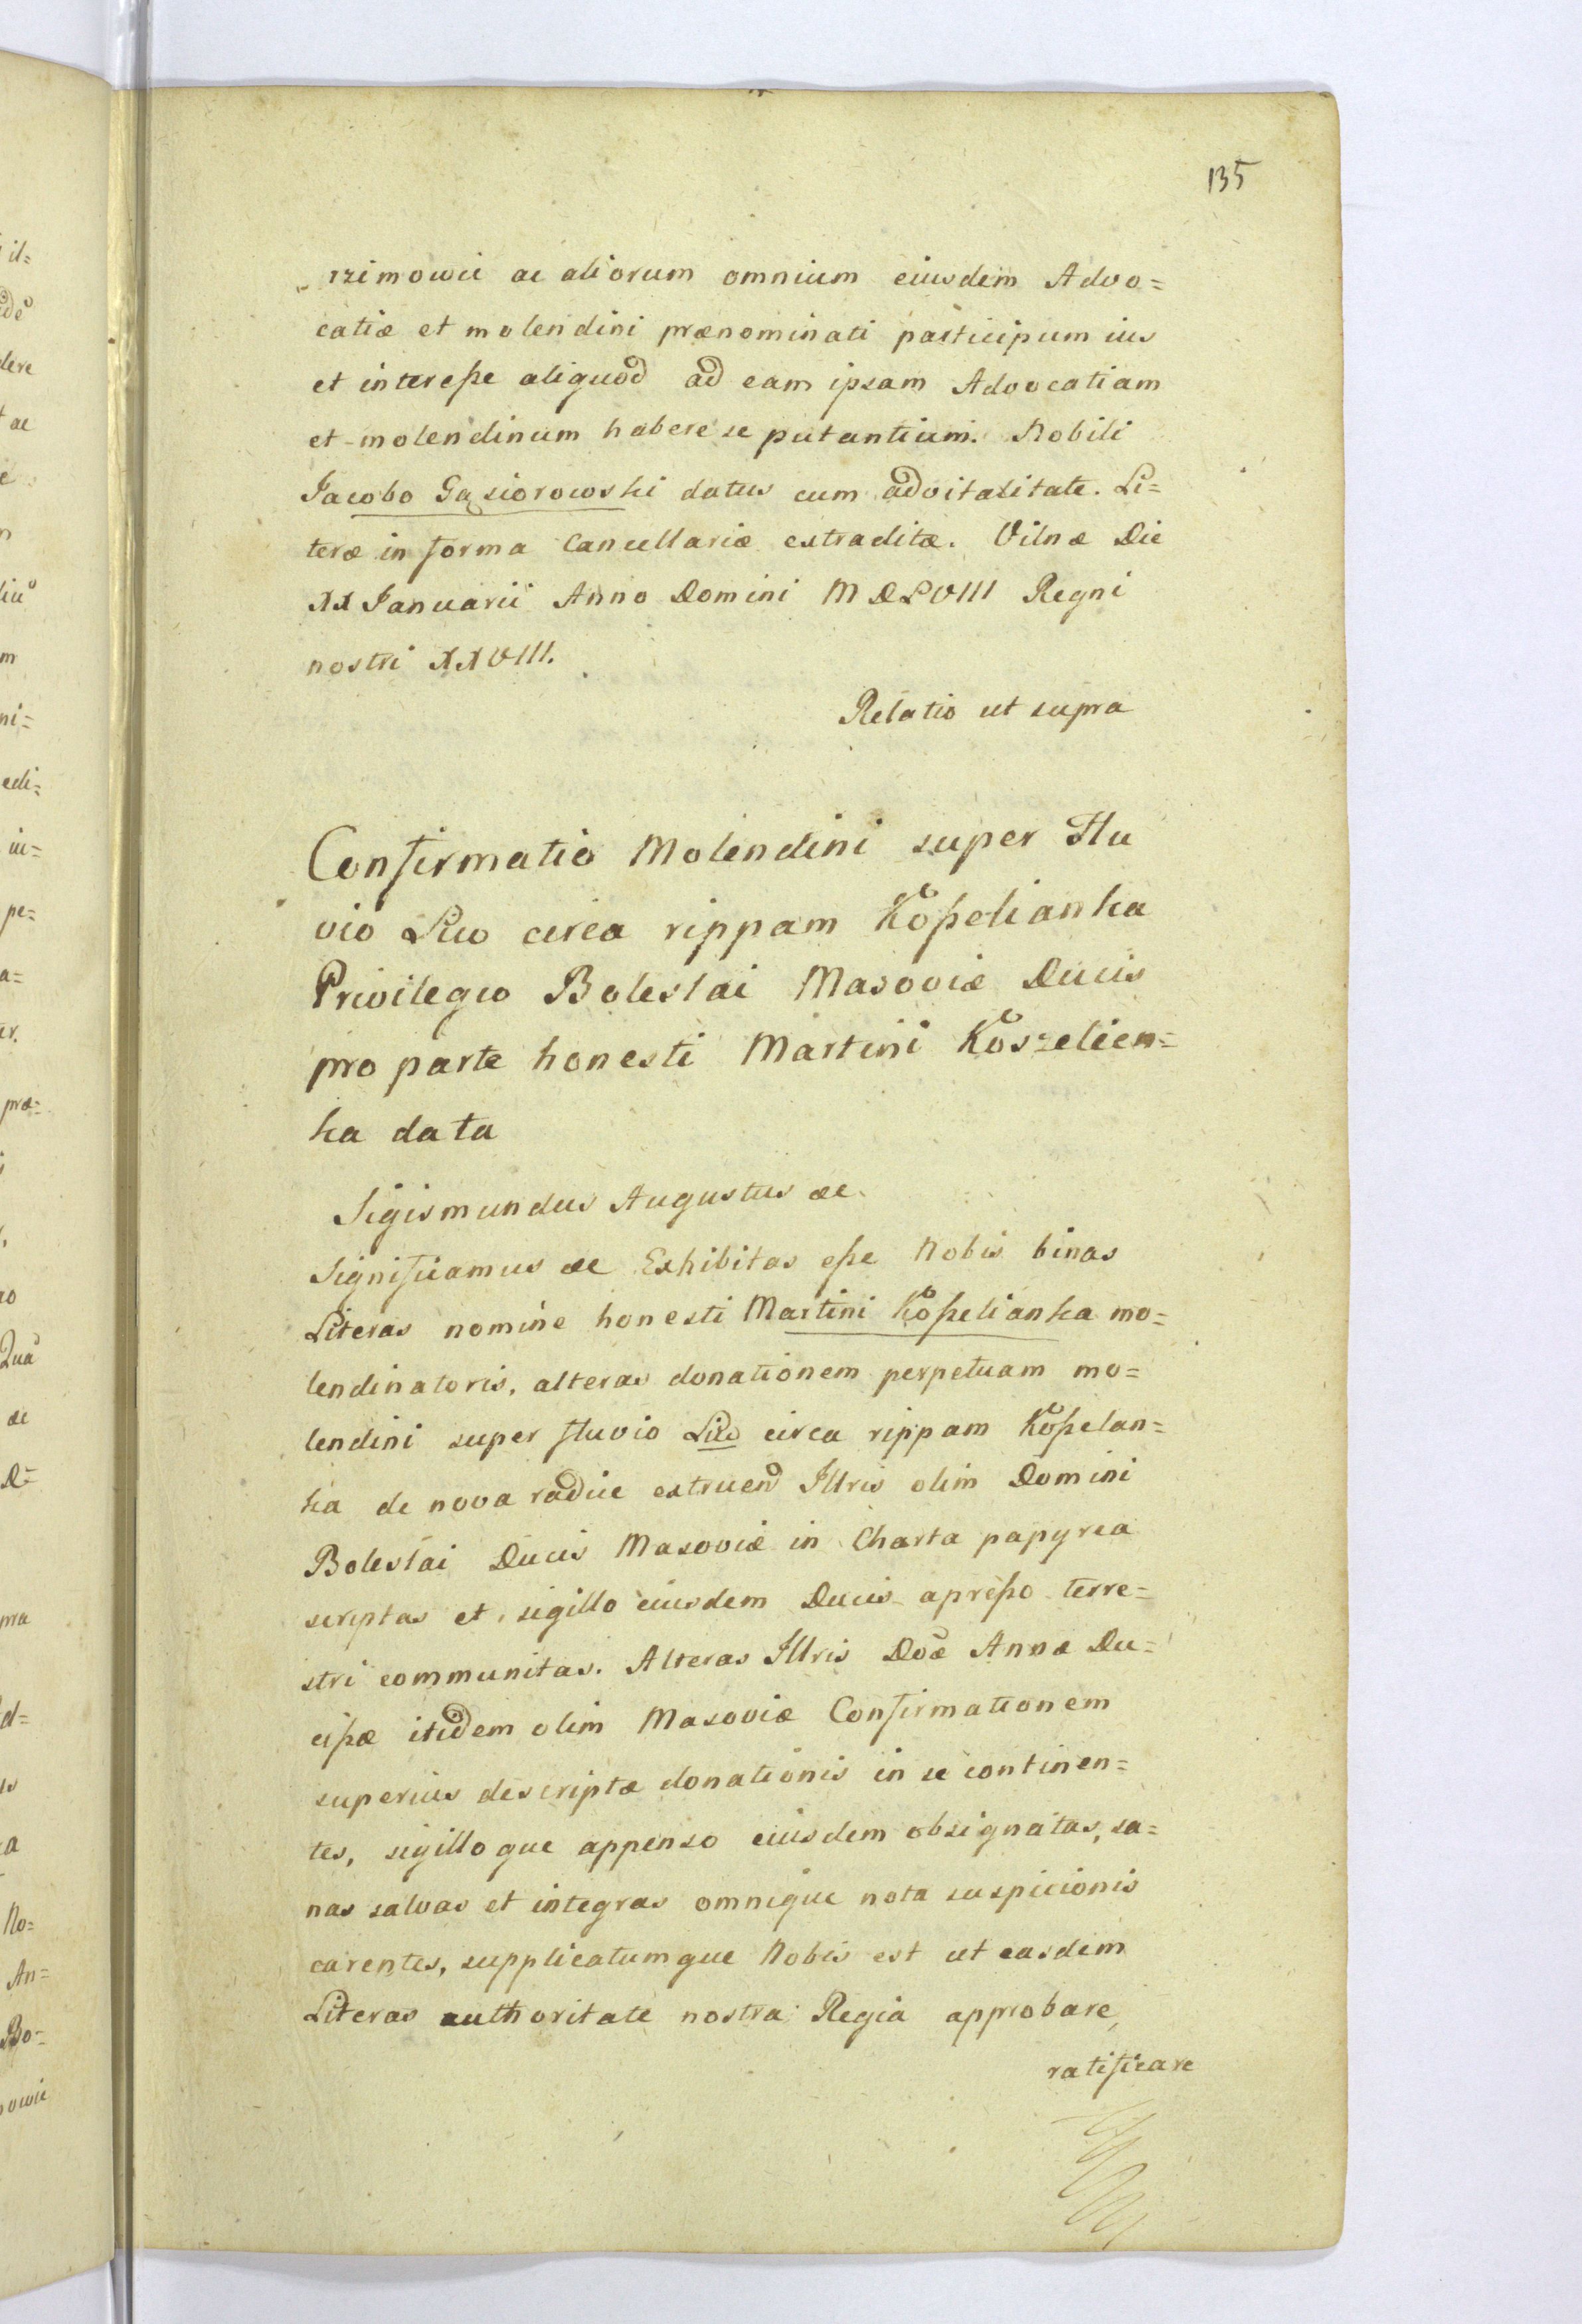 135
„rzimowic ac aliorum omnium eiusdem Advo=
catiæ et molendini prænominati participum ius
et interesse aliquod ad eam ipsam Advocatiam
et molendinum habere se putantium. Nobili
Jacobo Gąsiorowski datus cum advitalitate. Li=
teræ in forma Cancellariæ extraditæ. Vilnæ Die
XX Januarii Anno Domini MDLVIII Regni
nostri XXVIII.
Relatio ut supra
Confirmatio Molendini super Flu
vio Liw circa rippam Koßelianka
Privilegio Boleslai Masoviæ Ducis
pro parte honesti Martini Koszelien=
ka data
Sigismundus Augustus ac
Significamus ac Exhibitas esse Nobis binas
Literas nomine honesti Martini Koßelianka mo=
lendinatoris, alteras donationem perpetuam mo=
lendini super fluvio Liw circa rippam Koßelan=
ka de nova radice extruend Illris olim Domini
Boleslai Ducis Masoviæ in Charta papyrea
scriptas et sigillo eiusdem Ducis apresso terre=
stri communitas. Alteras Illris Doæ Annæ Du=
cißæ itidem olim Masoviæ Confirmationem
superius descriptæ donationis in se continen=
tes, sigilloque appenso eiusdem obsignatas, sa=
nas salvas et integras omnique nota suspicionis
carentes, supplicatumque Nobis est ut easdem
Literas authoritate nostra Regia approbare,
ratificare